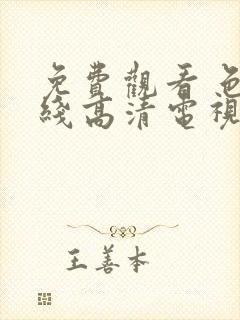 免費觀看色
綫高清電視
王善本